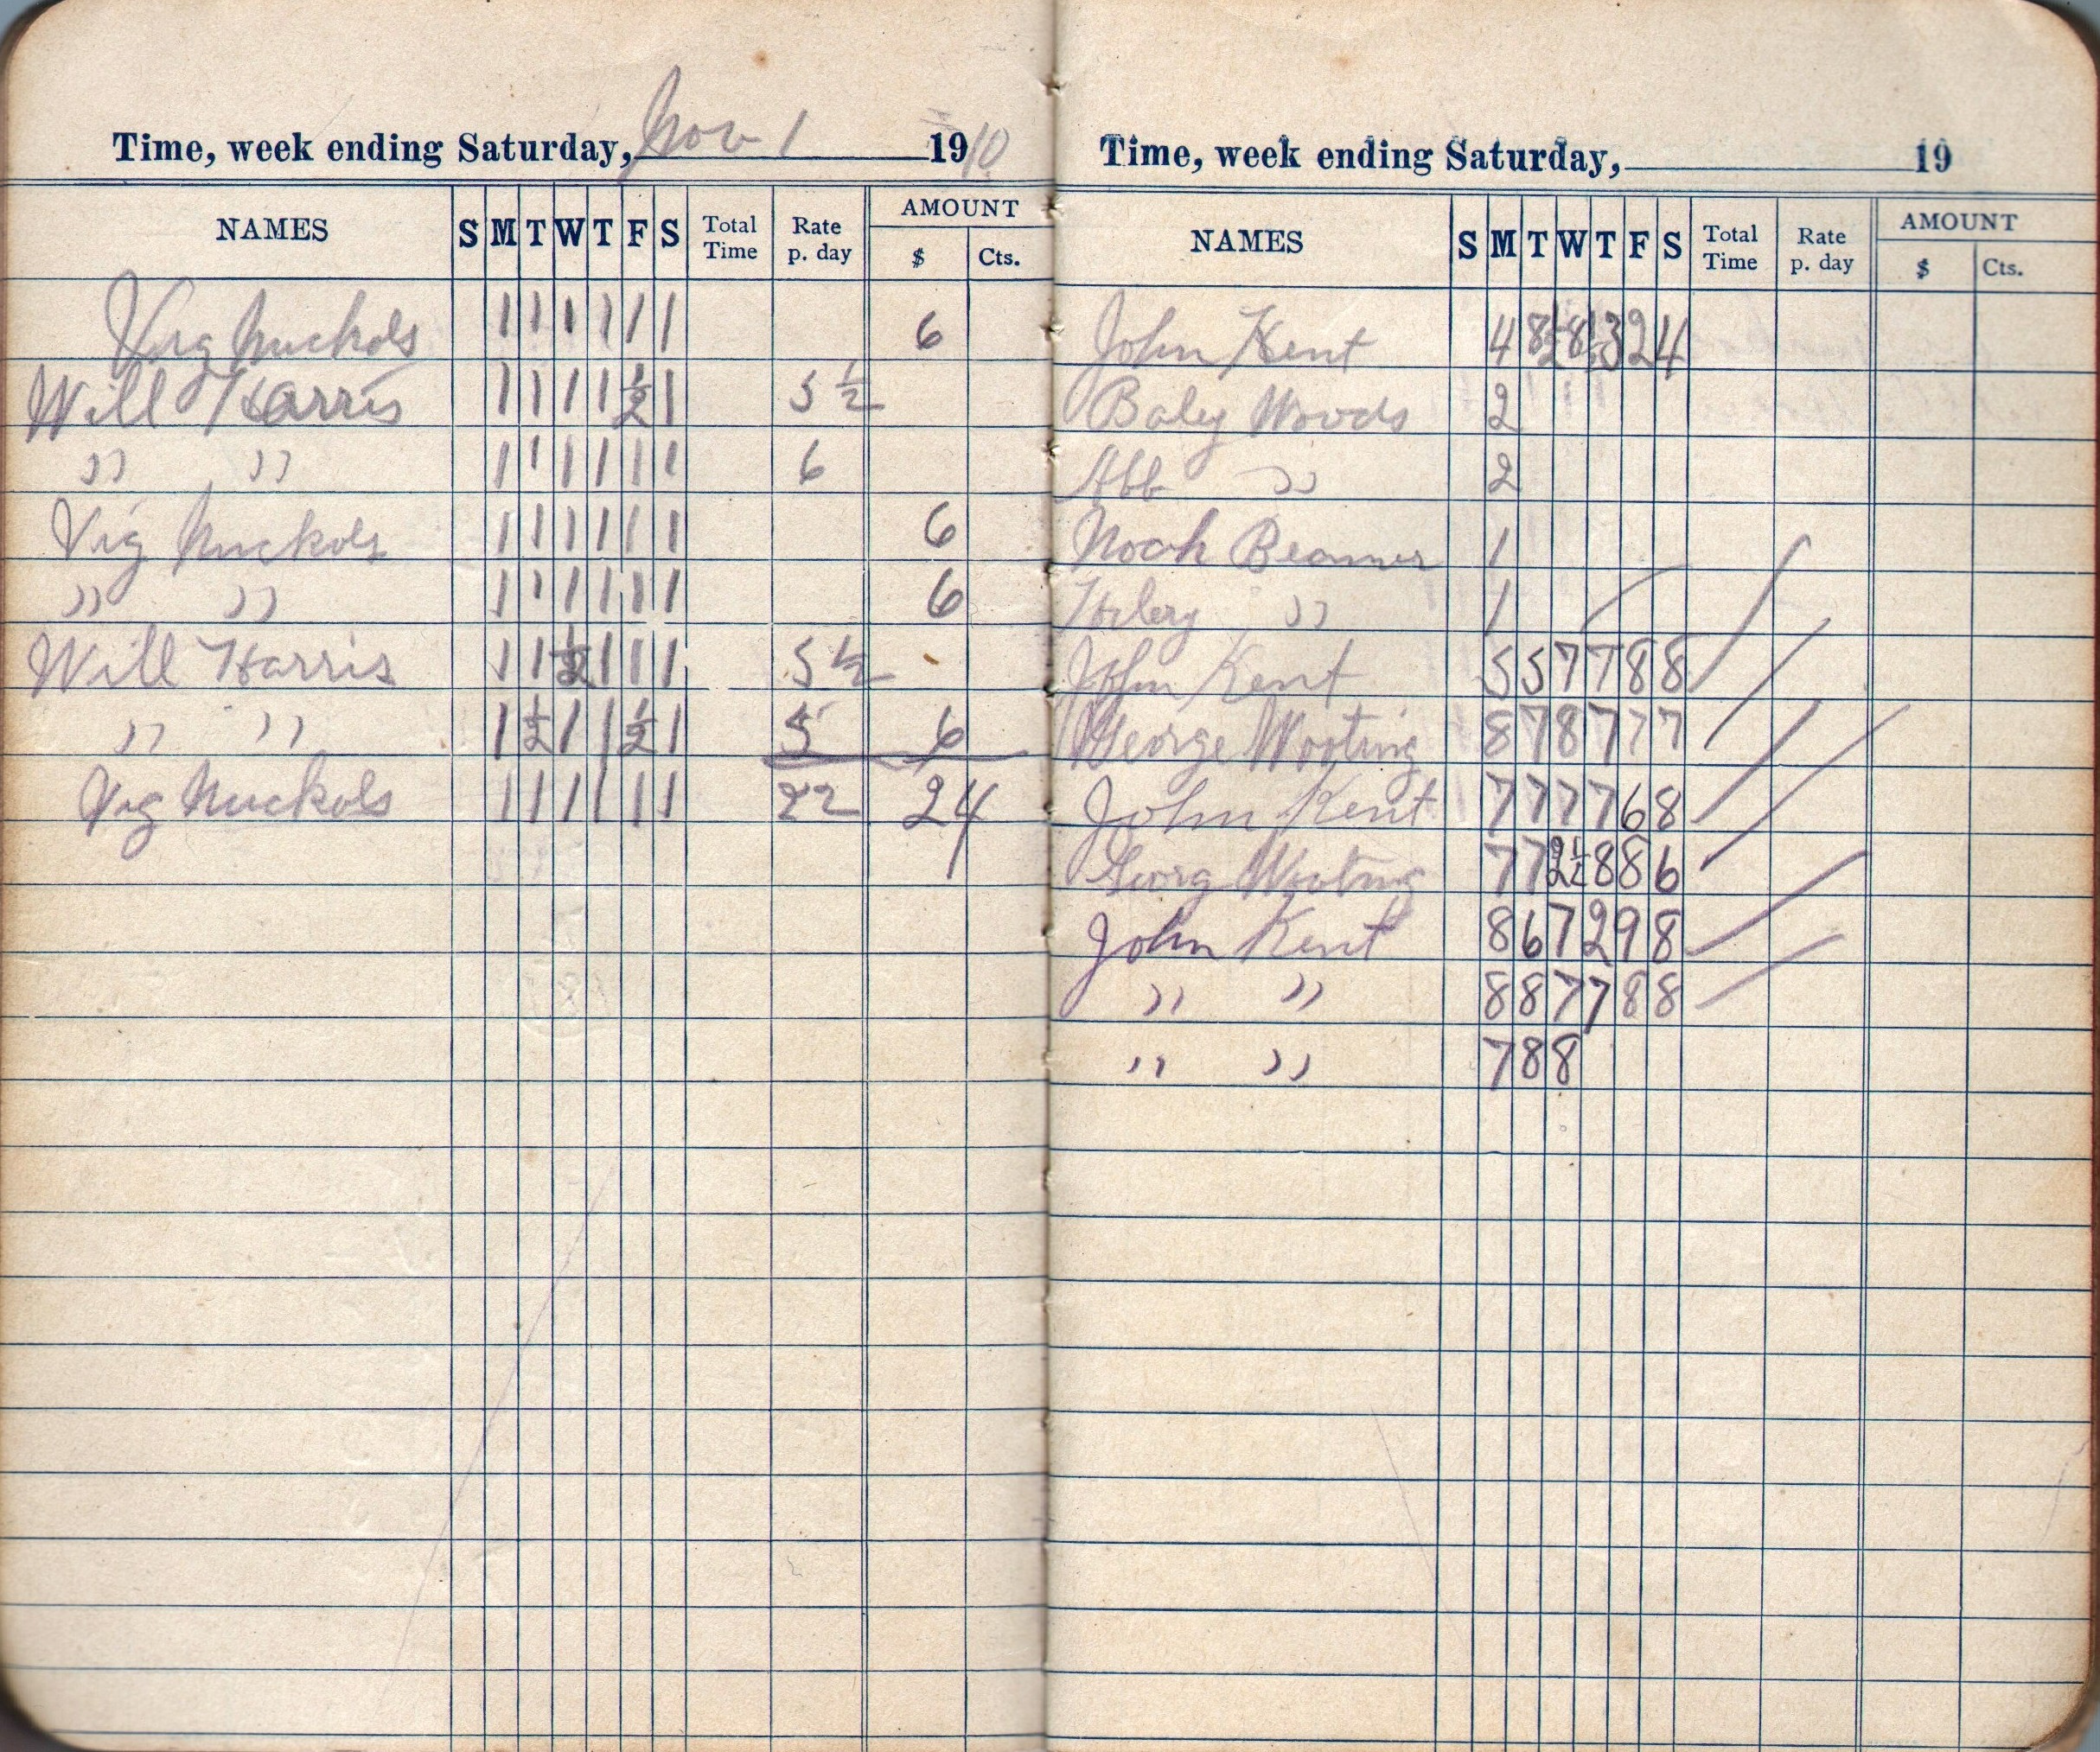 Time, week ending Saturday, Nov 1 1910
NAMES S M T W T F S Total Time Rate p. day AMOUNT $ Cts.
Virg Nuckols 1 1 1 1 1 1 6
Will Harris 1 1 1 1 ½ 1 5 ½
” ” 1 1 1 1 1 1 6
Virg Nuckols 1 1 1 1 1 1 6
” ” 1 1 1 1 1 1 6
Will Harris 1 1 ½ 1 1 1 5 ½
” ” 1 ½ 1 1 ½ 1 5 6
Virg Nuckols 1 1 1 1 1 1 22 24
Time, week ending Saturday, 19
NAMES S M T W T F S Total Time Rate p. day AMOUNT $ Cts.
John Kent 4 8½ 8½ 3 2 4
Baley Woods 2
Abb ” 2
Noah Beamer 1
Hilery ” 1
John Kent 5 5 7 7 8 8
George Wooting 8 7 8 7 7 7
John Kent 7 7 7 7 6 8
Georg Wooting 7 7 2½ 8 8 6
John Kent 8 6 7 2 9 8
” ” 8 8 7 7 8 8
” ” 7 8 8